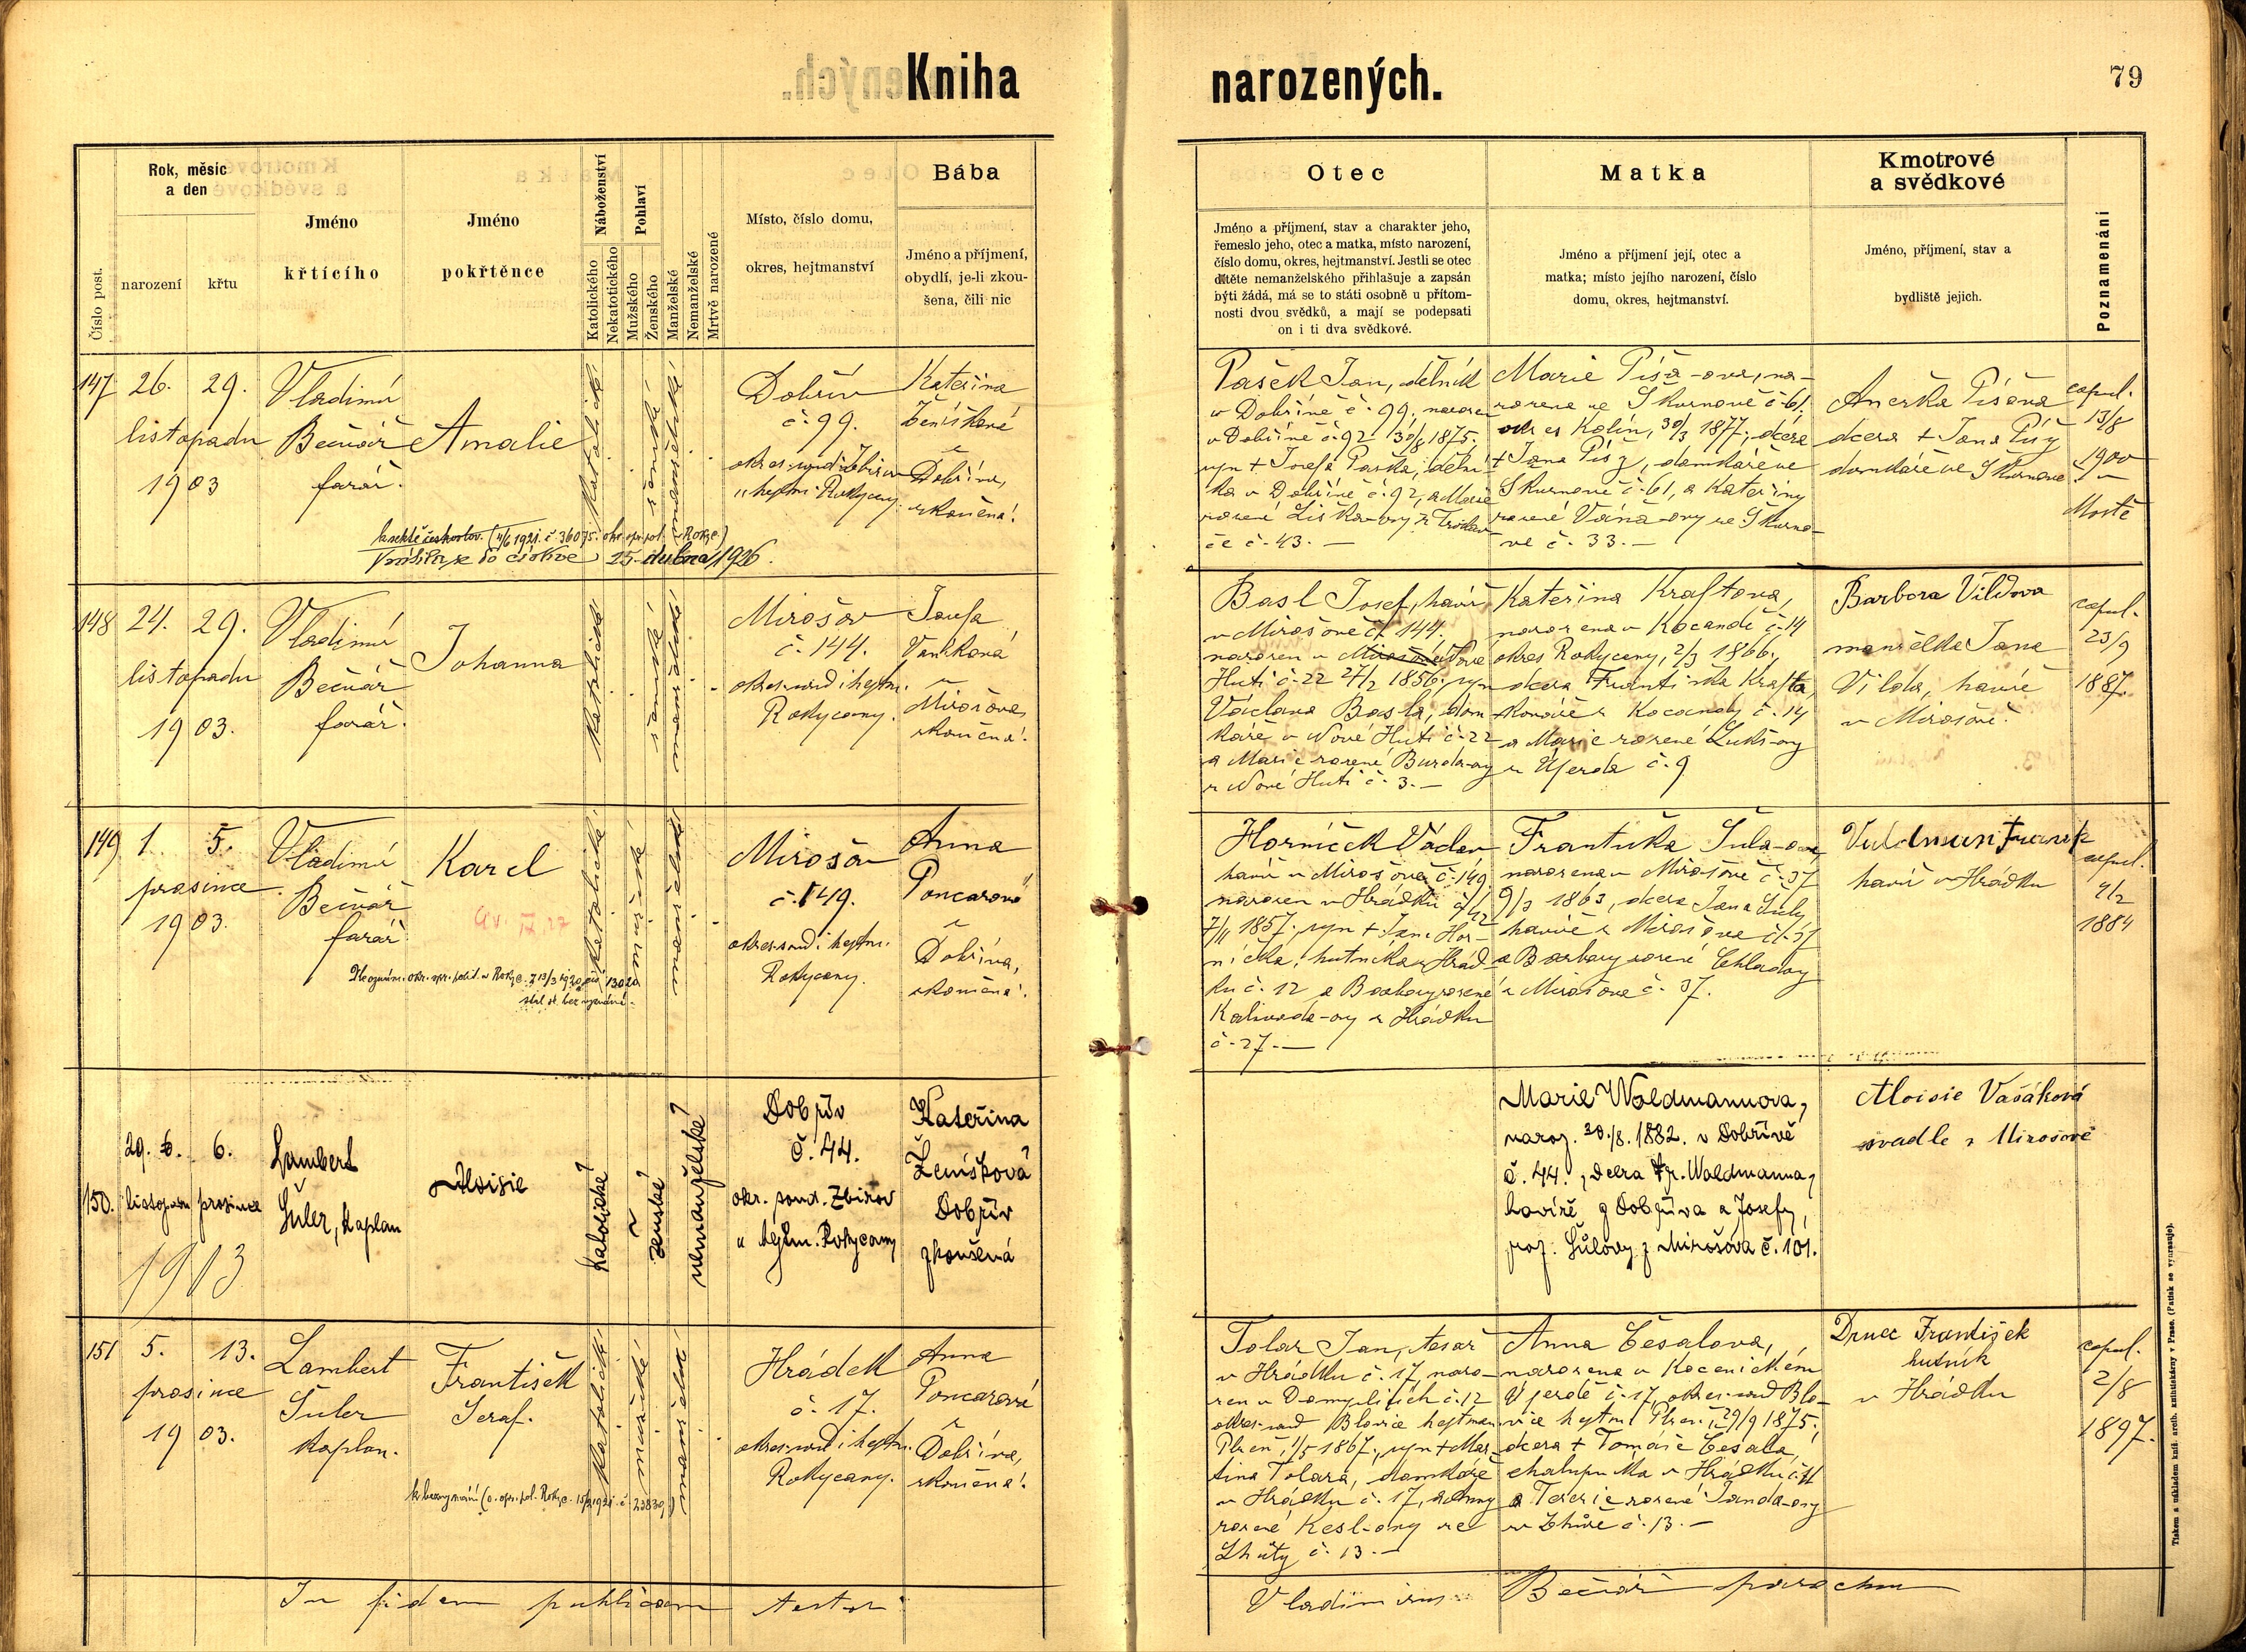 Kniha
narozených.
79
Číslo post.
Rok, měsíc
a den
narození
křtu
Jméno
křtícího
Jméno
pokřtěnce
Náboženství
Katolického
Nekatolického
Pohlaví
Mužského
Ženského
Manželské
Nemanželské
Mrtvě narozené
Místo, číslo domu,
okres, hejtmanství
Bába
Jméno a příjmení,
obydlí, je-li zkou-
šena, čili nic
Otec
Jméno a příjmení, stav a charakter jeho,
řemeslo jeho, otec a matka, místo narození,
číslo domu, okres, hejtmanství. Jestli se otec
dítěte nemanželského přihlašuje a zapsán
býti žádá, má se to státi osobně u přítom-
nosti dvou svědků, a mají se podepsati
on i ti dva svědkové.
Matka
Jméno a příjmení její, otec a
matka; místo jejího narození, číslo
domu, okres, hejtmanství.
Kmotrové
a svědkové
Jméno, příjmení, stav a
bydliště jejich.
Poznamenání
147
26.
listopadu
1903
29.
Vladimír
Bečvář
farář.
Amalie
katolické
ženské
manželské
Dobřív
č. 99.
okres. soud Zbirov
" hejtm. Rokycany
Kateřina
Ženíšková
z
Dobříva,
zkoušená.
(4/6 1921. č 36075. okr. spr. pol. v Rokyc.)
do čs. církve 25. dubna 1926.
Pašek Jan, dělník
v Dobřívě č. 99. narozen
v Dobřívě č. 92 30/8 1875.
syn + Josefa Paška, dělní-
ka v Dobřívě č. 92, a Marie
rozené Liška-ovy z
če č. 43.
Marie Píša-ova, na-
rozena ve Skurnově č. 61.
okres Kolín, 30/3 1877, dcera
+ Jana Píšy, domkáře ve
Skurnově č. 61, a Kateřiny
rozené Vána-ovy ve Skurno-
vě č. 33.
Anežka Píšova
dcera + Jana Píšy
domkáře ve Skurnově
copul.
13/8
1900
v
Mostě
148
24.
listopadu
1903.
29.
Vladimír
Bečvář
farář.
Johanna
katolické
ženské
manželské
Mirošov
č. 144.
okres. soud i hejtm.
Rokycany.
Vaníková
z
Mirošova
zkoušená.
Basl Josef, havíř
v Mirošově č. 144.
narozen v Mirošově Nové
Huti č. 22 27/2 1856. syn
Václava Basla, dom
káře v Nové Huti č. 22
a Marie rozené Burda-ovy
z Nové Huti č. 3.
Kateřina Kraftova,
narozena v Kocandě č. 14
okres Rokycany, 2/3 1866.
dcera Františka Krafta,
kováře z Kocandy č. 14
a Marie rozené Lukš-ovy
z Újezda č. 9
Barbora Vildova
manželka Jana
Vilda, havíře
v Mirošově.
copul.
23/9
1887.
149
1.
prosince
1903.
5.
Vladimír
Bečvář
farář
Karel
katolické
mužské
manželské
Mirošov
č. 149.
okres. soud i hejtm.
Rokycany.
Anna
Poncarová
z
Dobříva,
zkoušená.
okr. spr. polit. v Rokyc. z 13/3
stal se bez vyznání.
Horníček Václav
havíř v Mirošově č. 149
narozen v Hrádku č. 12
7/11 1857. syn + Jana Hor-
níčka, hutníka z Hrád-
ku č. 12 a Barbory rozené
Kalivoda-ovy z Hrádku
č. 27.
Františka Šula-ova,
narozena v Mirošově č. 37
9/3 1863, dcera Jana Šuly,
havíře z Mirošova č. 37
a Barbory rozené Chladovy
z Mirošova č. 37.
havíř v Hrádku
copul.
1884
150.
29. 6.
listopadu
1903
6.
prosince
Lambert
Šuler, kaplan
Aloisie
katolické
ženské
nemanželské
Dobřív
č. 44.
okr. soud. Zbirov
" hejtm. Rokycany
Kateřina
Ženíšková
Dobřív
zkoušená
Marie Waldmannova,
naroz. 20./8. 1882. v Dobřívě
č. 44., dcera Fr. Waldmanna,
havíře z Dobříva a Josefy,
roz. Šůlovy z Mirošova č. 101.
Aloisie Vašáková
švadle z Mirošově
151
5.
prosince
1903.
13.
Lambert
Šuler
kaplan.
František
Seraf.
katolické
mužské
manželské
Hrádek
č. 17.
okres. soud i hejtm.
Rokycany.
Anna
Poncarová
z
Dobříva,
zkoušená.
k bezvyznání (o. spr. pol. Rokyc. 15/2 1921. č. 23830.)
Tolar Jan, tesař
v Hrádku č. 17, naro-
zen v Domyslicích č. 12
okres. soud Blovice hejtman.
Plzeň, 1/5 1867. syn + Mar-
tina Tolara, domkáře
v Hrádku č. 17, a Anny
rozené Kesl-ovy ze
Lhůty č. 13.
Anna Česalova,
narozena v Kocenickém
Újezdě č. 17, okres. soud Blo-
vice hejtm. Plzeň, 29/9 1875.
dcera + Tomáše Česala,
chalupníka v Hrádku č. 11
a Terezie rozené Janda-ovy
č. 13.
Drnec František
hutník
v Hrádku
copul.
2/8
1897.
In fidem publicam testor
Vladimirus Bečvář parochus
Tiskem a nákladem knih. arcib. knihtiskárny v Praze. (Patisk se vyhrazuje).